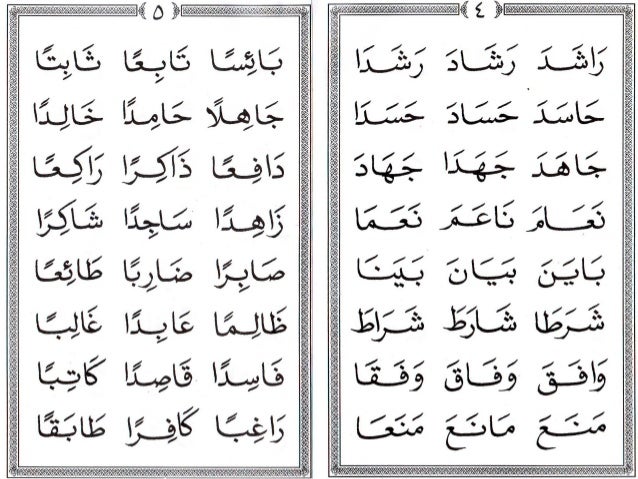 ٤
رَاشَدَ رَشَادَ رَشَدَا
حَاسَدَ حَسَادَ حَسَدَا
جَاهَدَ جَهَدَا جَهَادَ
نَعَامَ نَاعَمَ نَعَمَا
بَايَنَ بَيَانَ بَيَنَا
شَرَطَا شَارَطَ شَرَاطَ
وَافَقَ وَفَاقَ وَفَقَا
مَنَعَ مَانَعَ مَنَعَا
٥
بَائِسًا تَابِعًا ثَابِتًا
جَاهِلًا حَامِدًا خَالِدًا
دَافِعًا ذَاكِرًا رَاكِعًا
زَاهِدًا سَاجِدًا شَاكِرًا
صَابِرًا ضَارِبًا طَائِعًا
ظَالِمًا عَابِدًا غَالِبًا
فَاسِدًا قَاصِدًا كَاتِبًا
رَاغِبًا كَافِرًا طَابَقًا